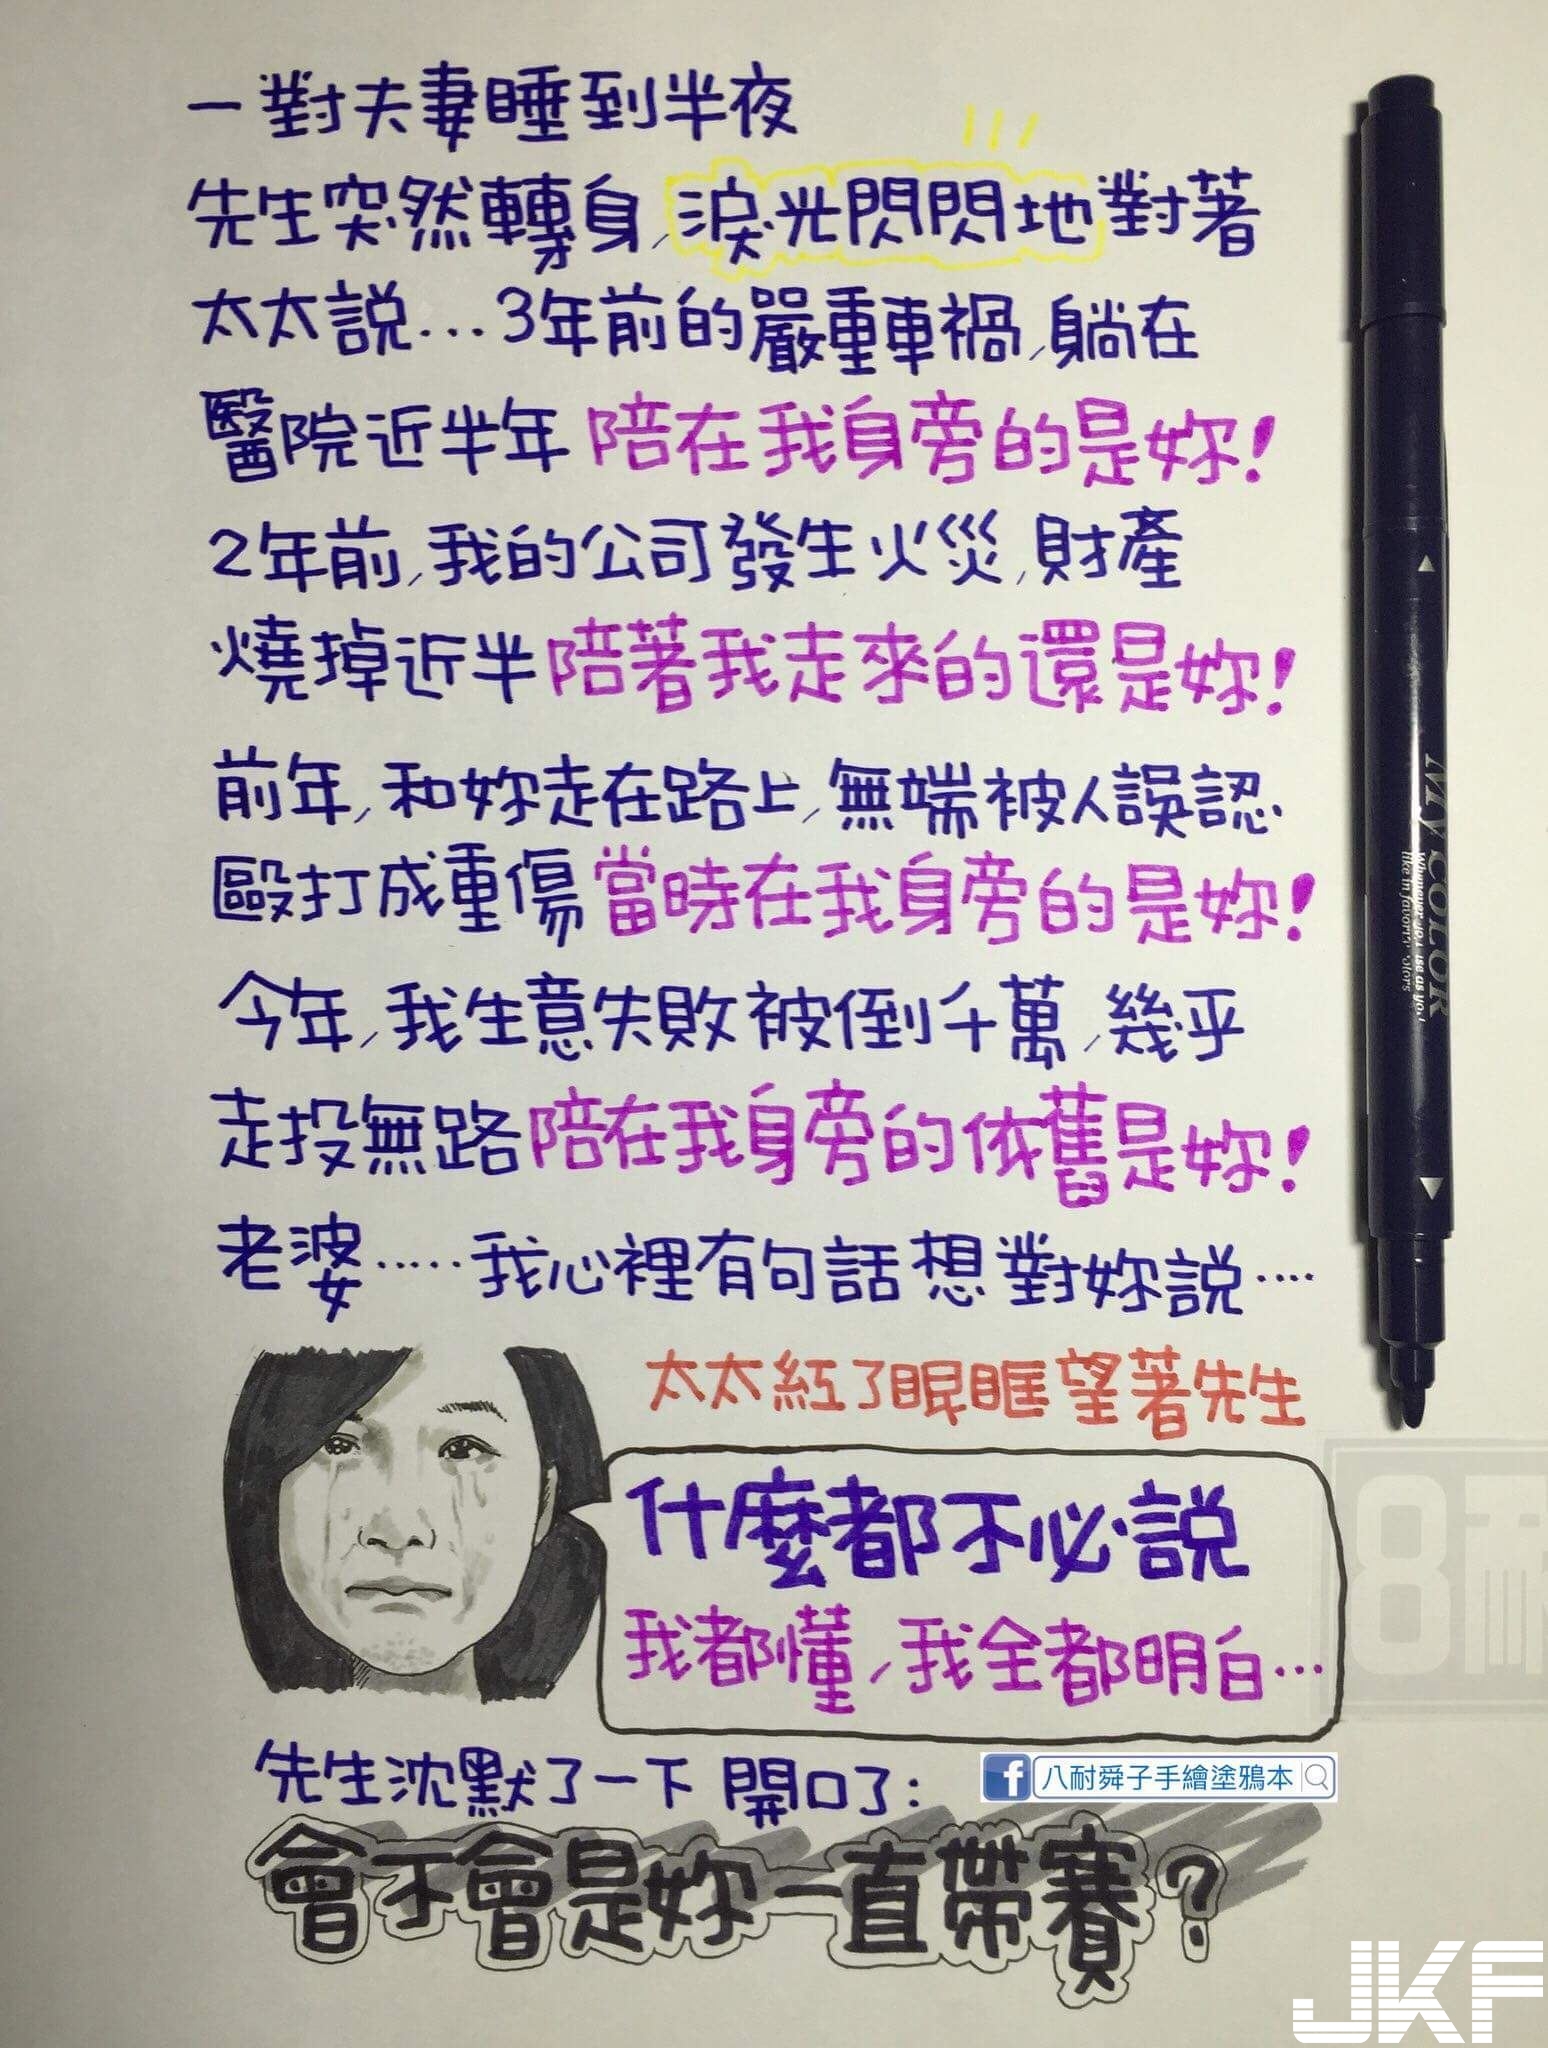 一對夫妻睡到半夜
先生突然轉身,淚光閃閃地對著
太太說...3年前的嚴重車禍,躺在
醫院近半年 陪在我身旁的是妳!
2年前,我的公司發生火災,財產
燒掉近半陪著我走來的還是妳!
前年,和妳走在路上,無端被人誤認
毆打成重傷 當時在我身旁的是妳!
今年,我生意失敗被倒千萬,幾乎
走投無路陪在我身旁的依舊是妳!
老婆.....我心裡有句話想對妳說....
太太紅了眼眶望著先生
什麼都不必說
我都懂,我全都明白...
先生沈默了一下 開口了:
f 八耐舜子手繪塗鴉本
會不會是妳一直帶賽?
MY COLOR
8耐
JKF